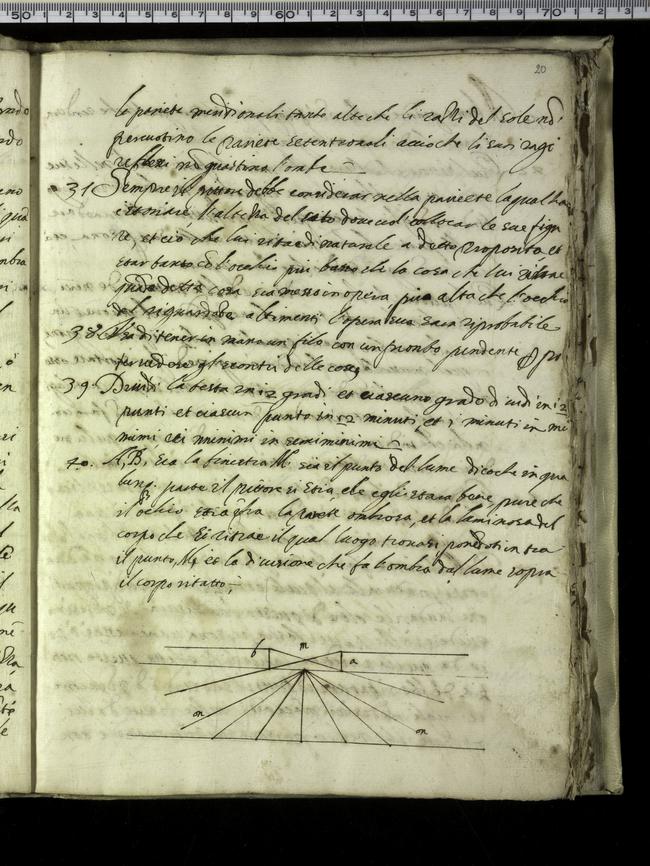 20
le pariete meridionali tanto alte che li razzi del sole nõ
percuotino le pariete setentrionali accioche li suoi razi
reflessi nõ guastino l'ombre
37 Sempre il pittore debbe considerar nella pariete la qual ha
istoriare l'altezza del sito doue uol collocar le sue figu
re, et ciò che lui ritra di naturale a detto proposito et
star tanto cõ l'occhio piu basso che la cosa che lui ritrae
detta cosa sia messo in opera piu alta che l'occhio
del riguardatore altrimenti l'opera sua sara riprobabile
38 Usa di tener in mano un filo con un piombo pendente per po
ter uedere gli scontri delle cose
39 Diuidi la testa in 12 gradi et ciascuno grado diuidi in 12
punti et ciascun punto in 12 minuti et i minuti in mi
nimi et i minimi in semiminimi
40. A, B, sia la finestra M. sia il punto del lume dico che in qua
lunq. parte il pittore si stia, che egli stara bene pure che
il ochio stia fra la parte ombrosa, et la luminosa del
corpo che si ritrae il qual luogo trouasi ponendoti in tra
il punto, M, et la diuisione che fa l'ombra dal lume sopra
il corpo ritatto;
b m a
on on
5 0 1 2 3 60 1 2 3 70 1 2 3